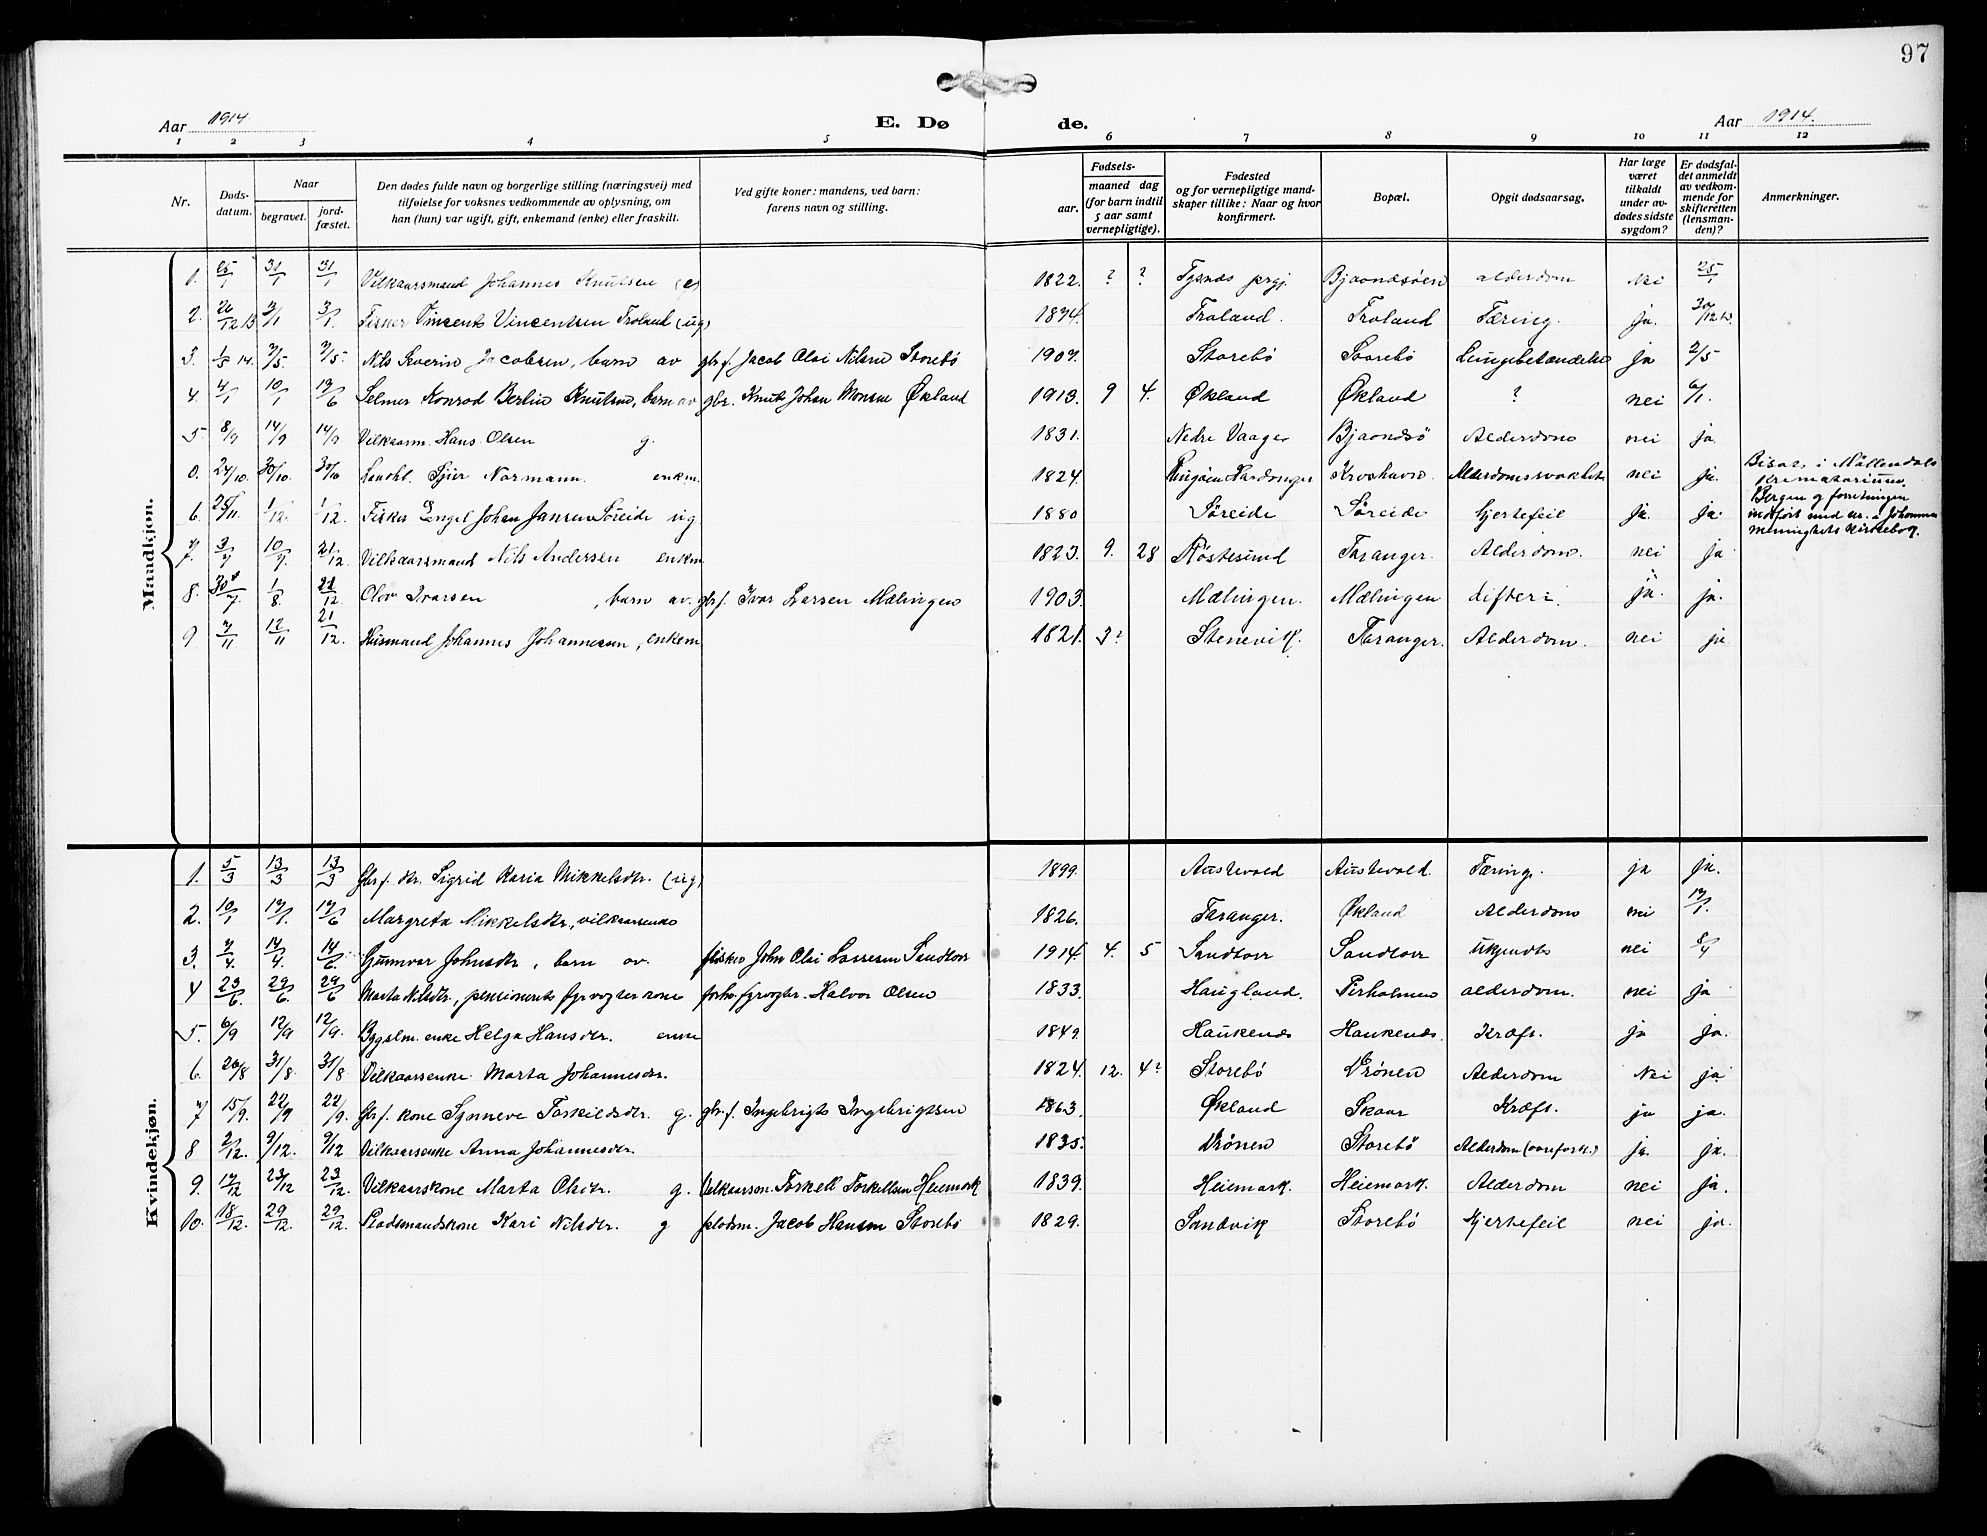 97
Aar 1914 E. Dø de. Aar 1914.
1 2 3 4 5 6 7 8 9 10 11 12
Nr. Døds-datum. Naar begravet. jord-fæstet. Den dødes fulde navn og borgerlige stilling (næringsvei) med tilføielse for voksnes vedkommende av oplysning, om han (hun) var ugift, gift, enkemand (enke) eller fraskilt. Ved gifte koner: mandens, ved barn: farens navn og stilling. Fødsels- aar. maaned dag (for barn indtil 5 aar samt vernepligtige). Fødested og for vernepligtige mand-skaper tillike: Naar og hvor konfirmert. Bopæl. Opgit dødsaarsag. Har læge været tilkaldt under av-dødes sidste sygdom? Er dødsfal-det anmeldt av vedkom-mende for skifteretten (lensman-den)? Anmerkninger.
Mandkjøn.
1. 25/1 31/1 31/1 Vilkaarsmand Johannes Knutsen (e) 1822. ? ? Tysnæs prgj. Bjaandsöen alderdom Nei 25/1
2. 26/12 13 3/1 3/1. Fisker Vincents Vincentsen Troland (ug) 1874. Troland. Troland Tæring. ja. 30/12 13.
3. 1/5 14. 7/5. 7/5. Nils Severin Jacobsen, barn av gbr.f. Jacob Olai Nilsen Storebö 1907. Storebö Storebö Lungebetændelse ja 2/5
4. 4/1 10/1 19/6 Selmer Konrad Berlin Knutsen, barn av gbr. Knut Johan Monsen Økland 1913. 9 4. Økland Økland ? nei 6/1.
5. 8/9 14/9 14/9 Vilkaarm. Hans Olsen g. 1831. Nedre Vaage Bjaandsö Alderdom nei ja.
0. 24/10. 30/10. 30/10 Landhl. Sjur Normann. enkm. 1824. Hardanger Kroshavn. Alderdomssvakhet nei ja. Bisat i Möllendals Krematorium, Bergen og forretningen indfört med nr. i Johannes menighets kirkebog.
6. 25/11. 1/12. 1/12. Fisker Engel Johan Jansen Söreide ug. 1880 Söreide Söreide hjertefeil ja. ja
7. 3/7 10/7. 21/12. Vilkaarsmand Nils Andersen enkm. 1823. 9. 28 Röstesund Taranger. Alderdom. nei ja
8. 30/7. 1/8. 21/12. Olav Ivarsen , barn av. gbr.f. Ivar Larsen Mælingen 1903. Mælingen. Mælingen difteri. ja. ja.
9. 7/11 12/11 21/12. Husmand Johannes Johannessen, enkem 1821. 3? Stenevik. Taranger. Alderdom. nei ja
Kvindekjøn.
1. 5/3 13/3 13/3 Gbr.f. dtr. Sigrid Karia Mikkelsdtr. (ug) 1899. Austevold Austevold. Tæring. ja ja.
2. 10/1 17/1. 17/6 Margreta Mikkelsdtr., vilkaarsenke 1826. Taranger. Økland Alderdom nei 17/1.
3. 7/4. 14/4. 14/6. Gunnvor Johnsdtr, barn av. fisker John Olai Larsen Sandtorv 1914. 4. 5 Sandtorv Sandtorv Ukjendt nei 8/4
4 23/6. 29/6. 29/6 Marta Nilsdtr., pensionerts fyrvogter kone forhv. fyrvogter. Halvor Olsen 1833. Haugland. Perholmen alderdom. nei ja
5. 6/9 12/9 12/9. Bygslm. enke Helga Hansdtr. enke 1849. Haukenæs Haukenæs. Kræft. ja ja.
6. 26/8 31/8. 31/8 Vilkaarsenke. Marta Johannesdtr. 1824. 12. 4? Storebö Drönen Alderdom Nei ja
7 15/9. 22/9 22/9. Gbr.f. kone Synneve Torkildsdtr. g. gbr.f. Ingebrigts Ingebrigtsen 1863. Økland Skaar Kræft. ja ja.
8 2/12. 9/12. 9/12 Vilkaarsenke Anna Johannesdtr. 1835. Drönen Storebö Alderdom ja. ja.
9. 17/12 23/12 23/12. Vilkaarskone Marta Olsdtr. g. Vilkaarsm. Torkell Torkellsen Heiemark 1839. Heiemark. Heiemark. Alderdom nei ja.
10. 18/12. 29/12. 29/12. Pladsmandskone Kari Nilsdtr. g pladsm. Jacob Hansen Storebö 1829. Sandvik Storebö Hjertefeil nei ja.